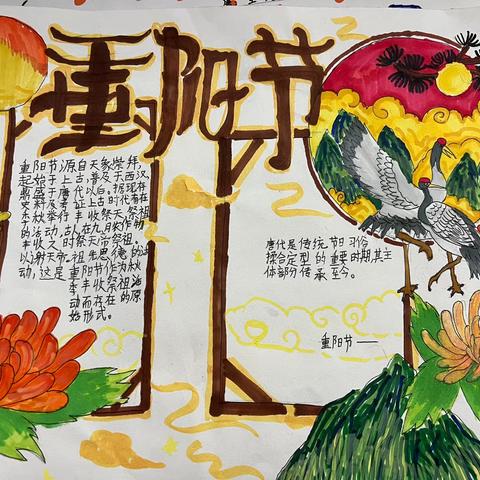 重阳节
重阳节源自天象崇拜,
起始于上古,普及于西汉
鼎盛于唐代以 。据现存
史料及考证上古时代有在
季秋举行丰收祭天祭祖
的活动,古人在九月农作物
丰收之时祭天帝祭祖,
以谢天帝祖先恩德的活
动,这是重阳节作为秋
季丰收祭祀活
动而存在的原
始形式。
唐代是传统节日习俗
揉合定型的重要时期,其主
体部分传承至今。
重阳节——